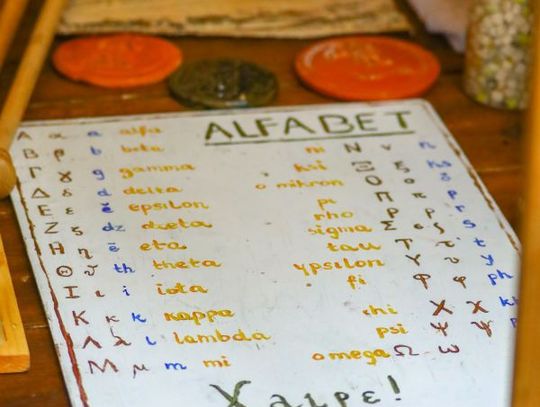 ALFABET
Α α a alfa
Β β b beta
Γ γ g gamma
Δ δ d delta
Ε ε ĕ epsilon
Ζ ζ dz dzeta
Η η ē eta
Θ ϑ th theta
Ι ι i iota
Κ κ k kappa
Λ λ l lambda
Μ μ m mi
ni Ν ν n
ksi Ξ ξ ks
o mikron Ο ο
pi Π π p
rho Ρ ρ r
sigma Σ σ ς s
tau Τ τ t
ypsilon Υ υ y
fi Φ φ ph
chi Χ χ
psi Ψ ψ
omega Ω ω
Χαιρε!